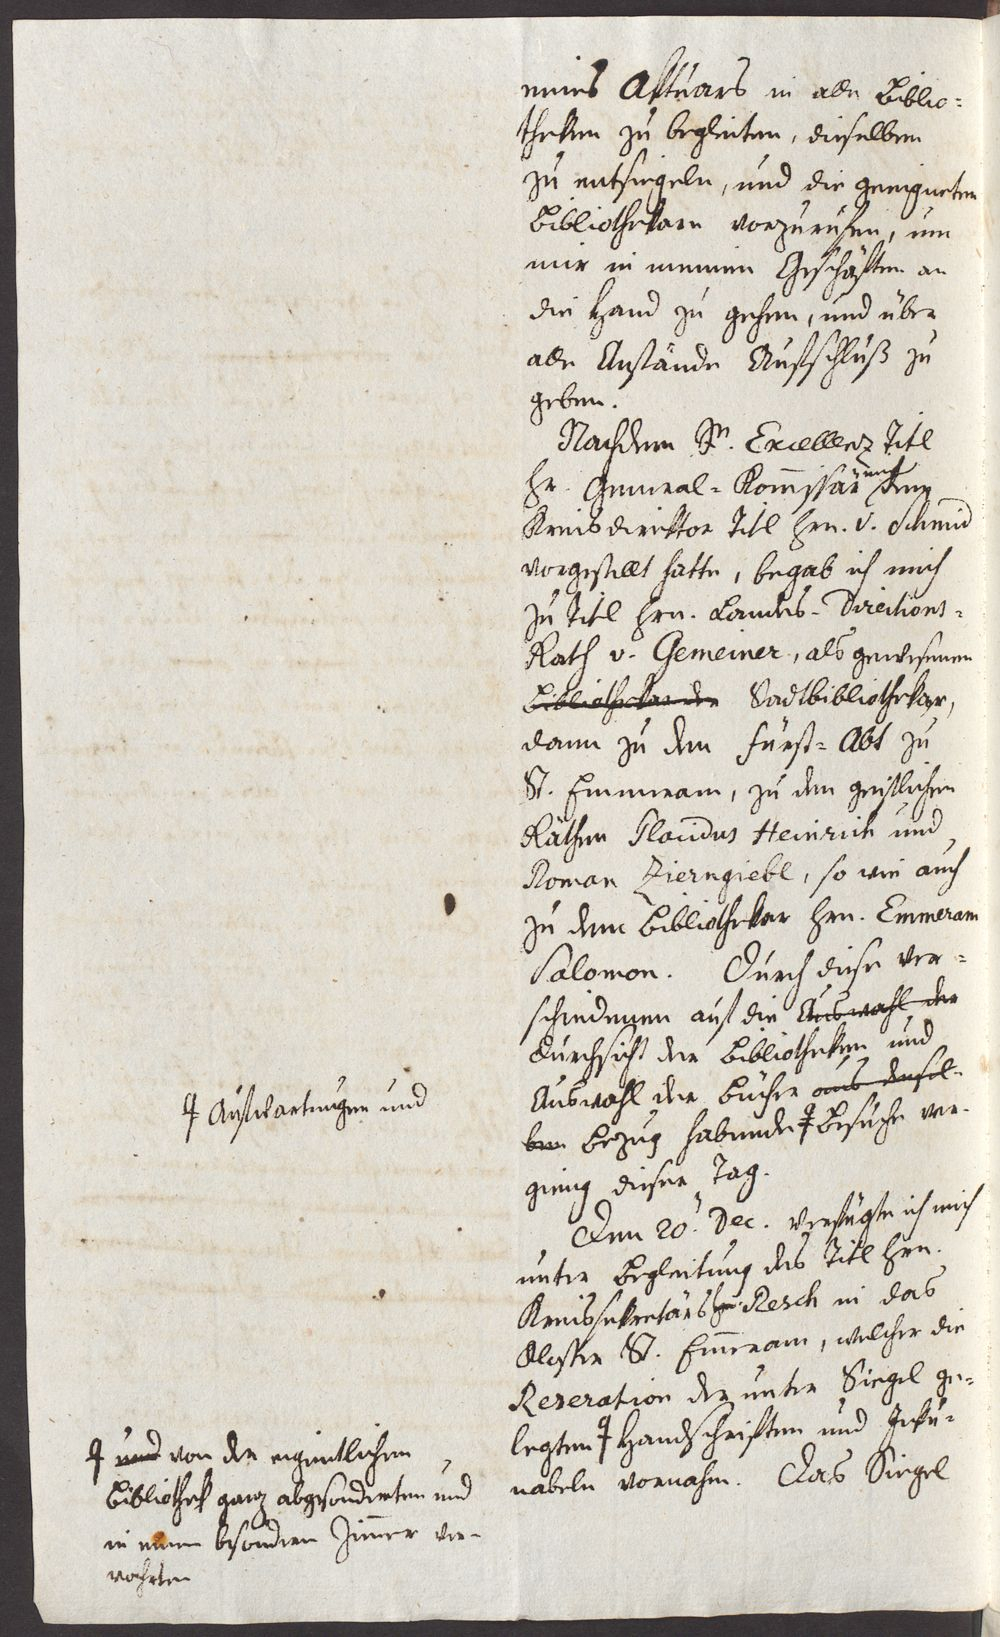 eines Aktuars in alle Biblio=
theken zu begleiten, dieselben
zu entsiegeln, und die geeigneten
Bibliothekare vorzurufen, um
mir in meinen Geschäften an
die Hand zu gehen, und über
alle Anstände Aufschluß zu
geben.
Nachdem Sn. Excellenz Titl
Hr. General=Kommissär mich dem
Kreisdirektor Titl Hrn. v. Schmid
vorgestellt hatte, begab ich mich
zu Titl Hrn. Landes-Directions=
Rath v. Gemeiner, als gewesenen
Bibliothekar der Stadtbibliothekar,
dann zu dem Fürst=Abt zu
St. Emmeram, zu den geistlichen
Räthen Placidus Heinrich und
Roman Zierngiebl, so wie auch
zu dem Bibliothekar Hrn. Emmeram
Salomon. Durch diese ver=
schiedenen auf die Auswahl der
Durchsicht der Bibliotheken und
Auswahl der Bücher aus densel-
ben Bezug habende Besuche ver-
gieng dieser Tag.
Aufwartungen und
Den 20. Dec. verfügte ich mich
unter Begleitung des Titl Hrn.
Kreissekretärs Resch in das
Kloster St. Emeram, welcher die
Reseration der unter Siegel ge=
legten Handschriften und Inku=
nabeln vornahm. Das Siegel
und von der eigentlichen
Bibliothek ganz abgesonderten und
in einem besondern Zimmer ver-
wahrten